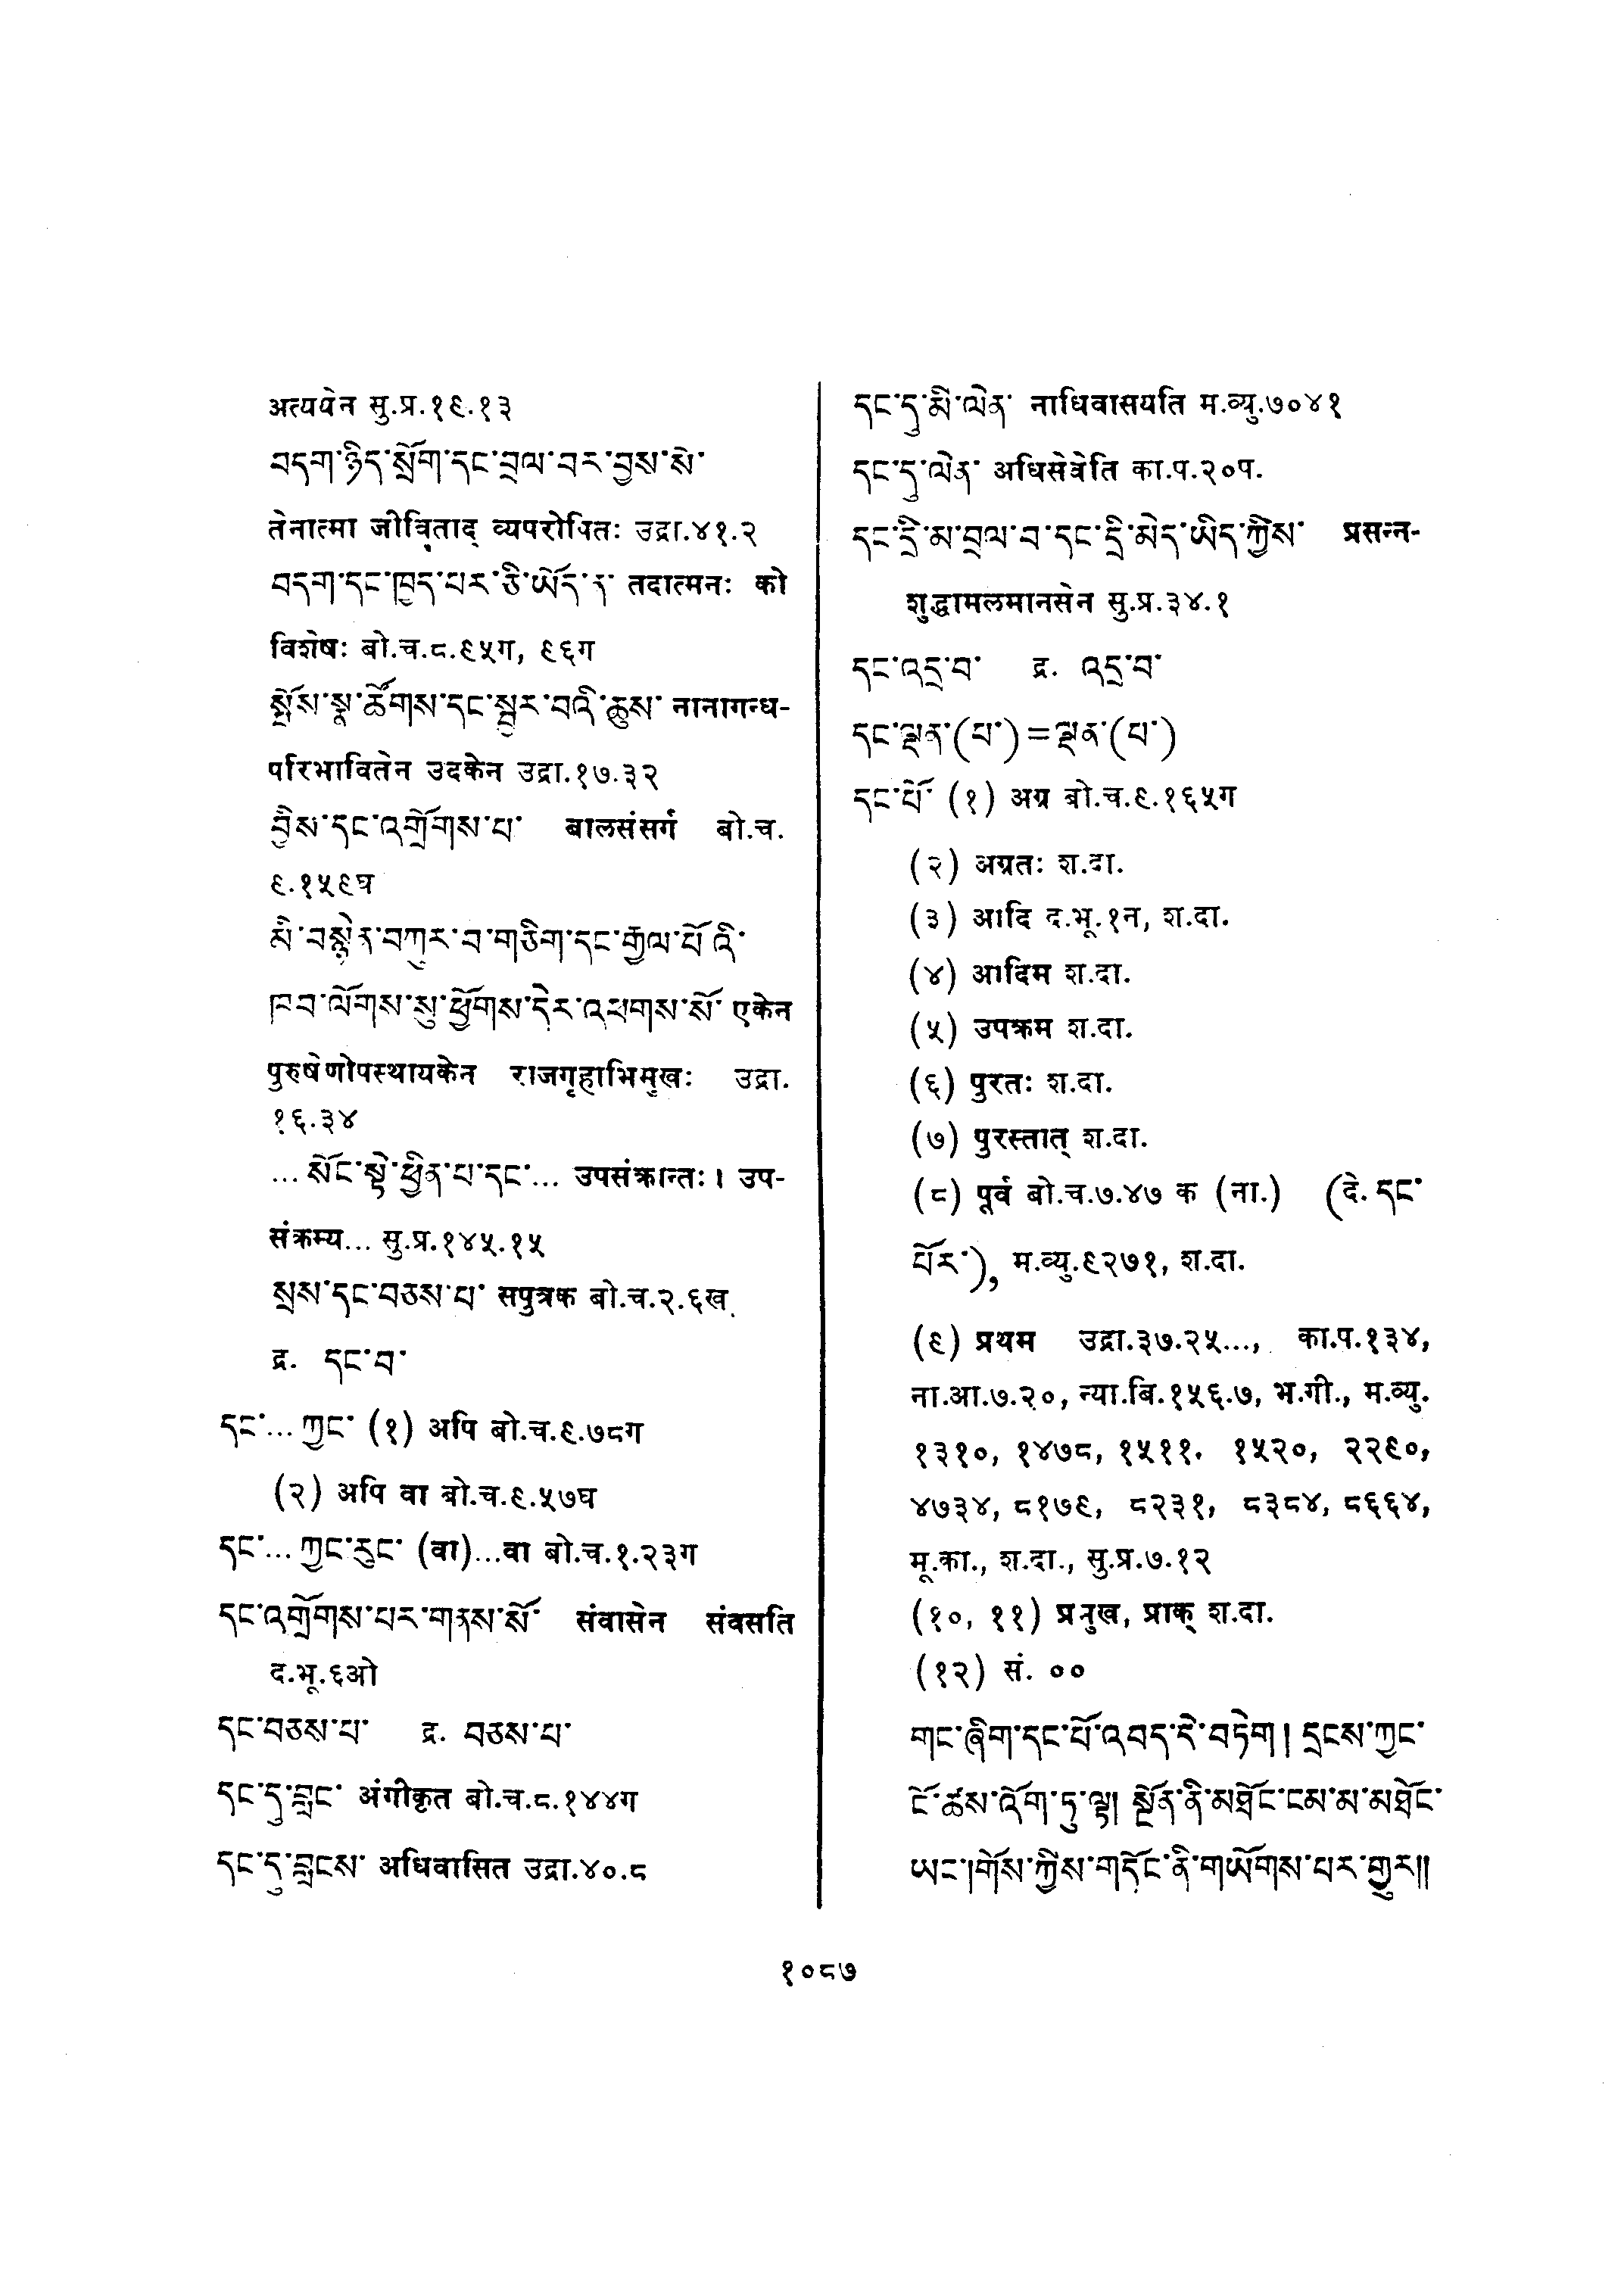 अत्ययेन सु.प्र.१९.१३
བདག་ཉིད་སྲོག་དང་བྲལ་བར་བྱས་སེ་
तेनात्मा जीविताद् व्यपरोपितः उद्रा.४१.२
བདག་དང་ཁྱད་པར་ཅི་ཡོད་ན་ तदात्मनः को
विशेषः बो.च.८.९५ग, ९६ग
སྤོས་སྣ་ཚོགས་དང་སྦྱར་བའི་ཆུས་ नानागन्ध-
परिभावितेन उदकेन उद्रा.१७.३२
བྱིས་དང་འགྲོགས་པ་ बालसंसर्ग बो.च.
९.१५९घ
མི་བསྙེན་བཀུར་བ་གཅིག་དང་རྒྱལ་པོ་འི་
ཁབ་ལོགས་སུ་ཕྱོགས་དེར་འཕགས་སོ་ एकेन
पुरुषेणोपस्थायकेन राजगृहाभिमुखः उद्रा.
१६.३४
... སོང་སྟེ་ཕྱིན་པ་དང་... उपसंक्रान्तः। उप-
संक्रम्य... सु.प्र.१४५.१५
སྲས་དང་བཅས་པ་ सपुत्रक बो.च.२.६ख
द्र. དང་བ་
དང་... ཀྱང་ (१) अपि बो.च.९.७८ग
(२) अपि वा बो.च.९.५७घ
དང་... ཀྱང་རུང་ (वा)...वा बो.च.१.२३ग
དང་འགྲོགས་པར་གནས་སོ་ संवासेन संवसति
द.भू.६ओ
དང་བཅས་པ་ द्र. བཅས་པ་
དང་དུ་བླང་ अंगीकृत बो.च.८.१४४ग
དང་དུ་བླངས་ अधिवासित उद्रा.४०.८
དང་དུ་མི་ལེན་ नाधिवासयति म.व्यु.७०४१
དང་དུ་ལེན་ अधिसेवेति का.प.२०प.
དང་དྲི་མ་བྲལ་བ་དང་དྲི་མེད་ཡིད་ཀྱིས་ प्रसन्न-
शुद्धामलमानसेन सु.प्र.३४.१
དང་འདྲ་བ་ द्र. འདྲ་བ་
དང་ལྡན་(པ་)=ལྡན་(པ་)
དང་པོ་ (१) अग्र बो.च.९.१६५ग
(२) अग्रतः श.दा.
(३) आदि द.भू.१न, श.दा.
(४) आदिम श.दा.
(५) उपक्रम श.दा.
(६) पुरतः श.दा.
(७) पुरस्तात् श.दा.
(८) पूर्व बो.च.७.४७ क (ना.) (दे. དང་
པོར་), म.व्यु.९२७१, श.दा.
(९) प्रथम उद्रा.३७.२५..., का.प.१३४,
ना.आ.७.२०, न्या.बि.१५६.७, भ.गी., म.व्यु.
१३१०, १४७८, १५११. १५२०, २२९०,
४७३४, ८१७९, ८२३१, ८३८४, ८६६४,
मू.का., श.दा., सु.प्र.७.१२
(१०, ११) प्रमुख, प्राक् श.दा.
(१२) सं. ००
གང་ཞིག་དང་པོ་འབད་དེ་བཏེག། དྲངས་ཀྱང་
ངོ་ཚས་འོག་ཏུ་ལྟ། སྔོན་ནི་མཐོང་ངམ་མ་མཐོང་
ཡང་།གོས་ཀྱིས་གདོང་ནི་གཡོགས་པར་གྱུར།།
१०८७